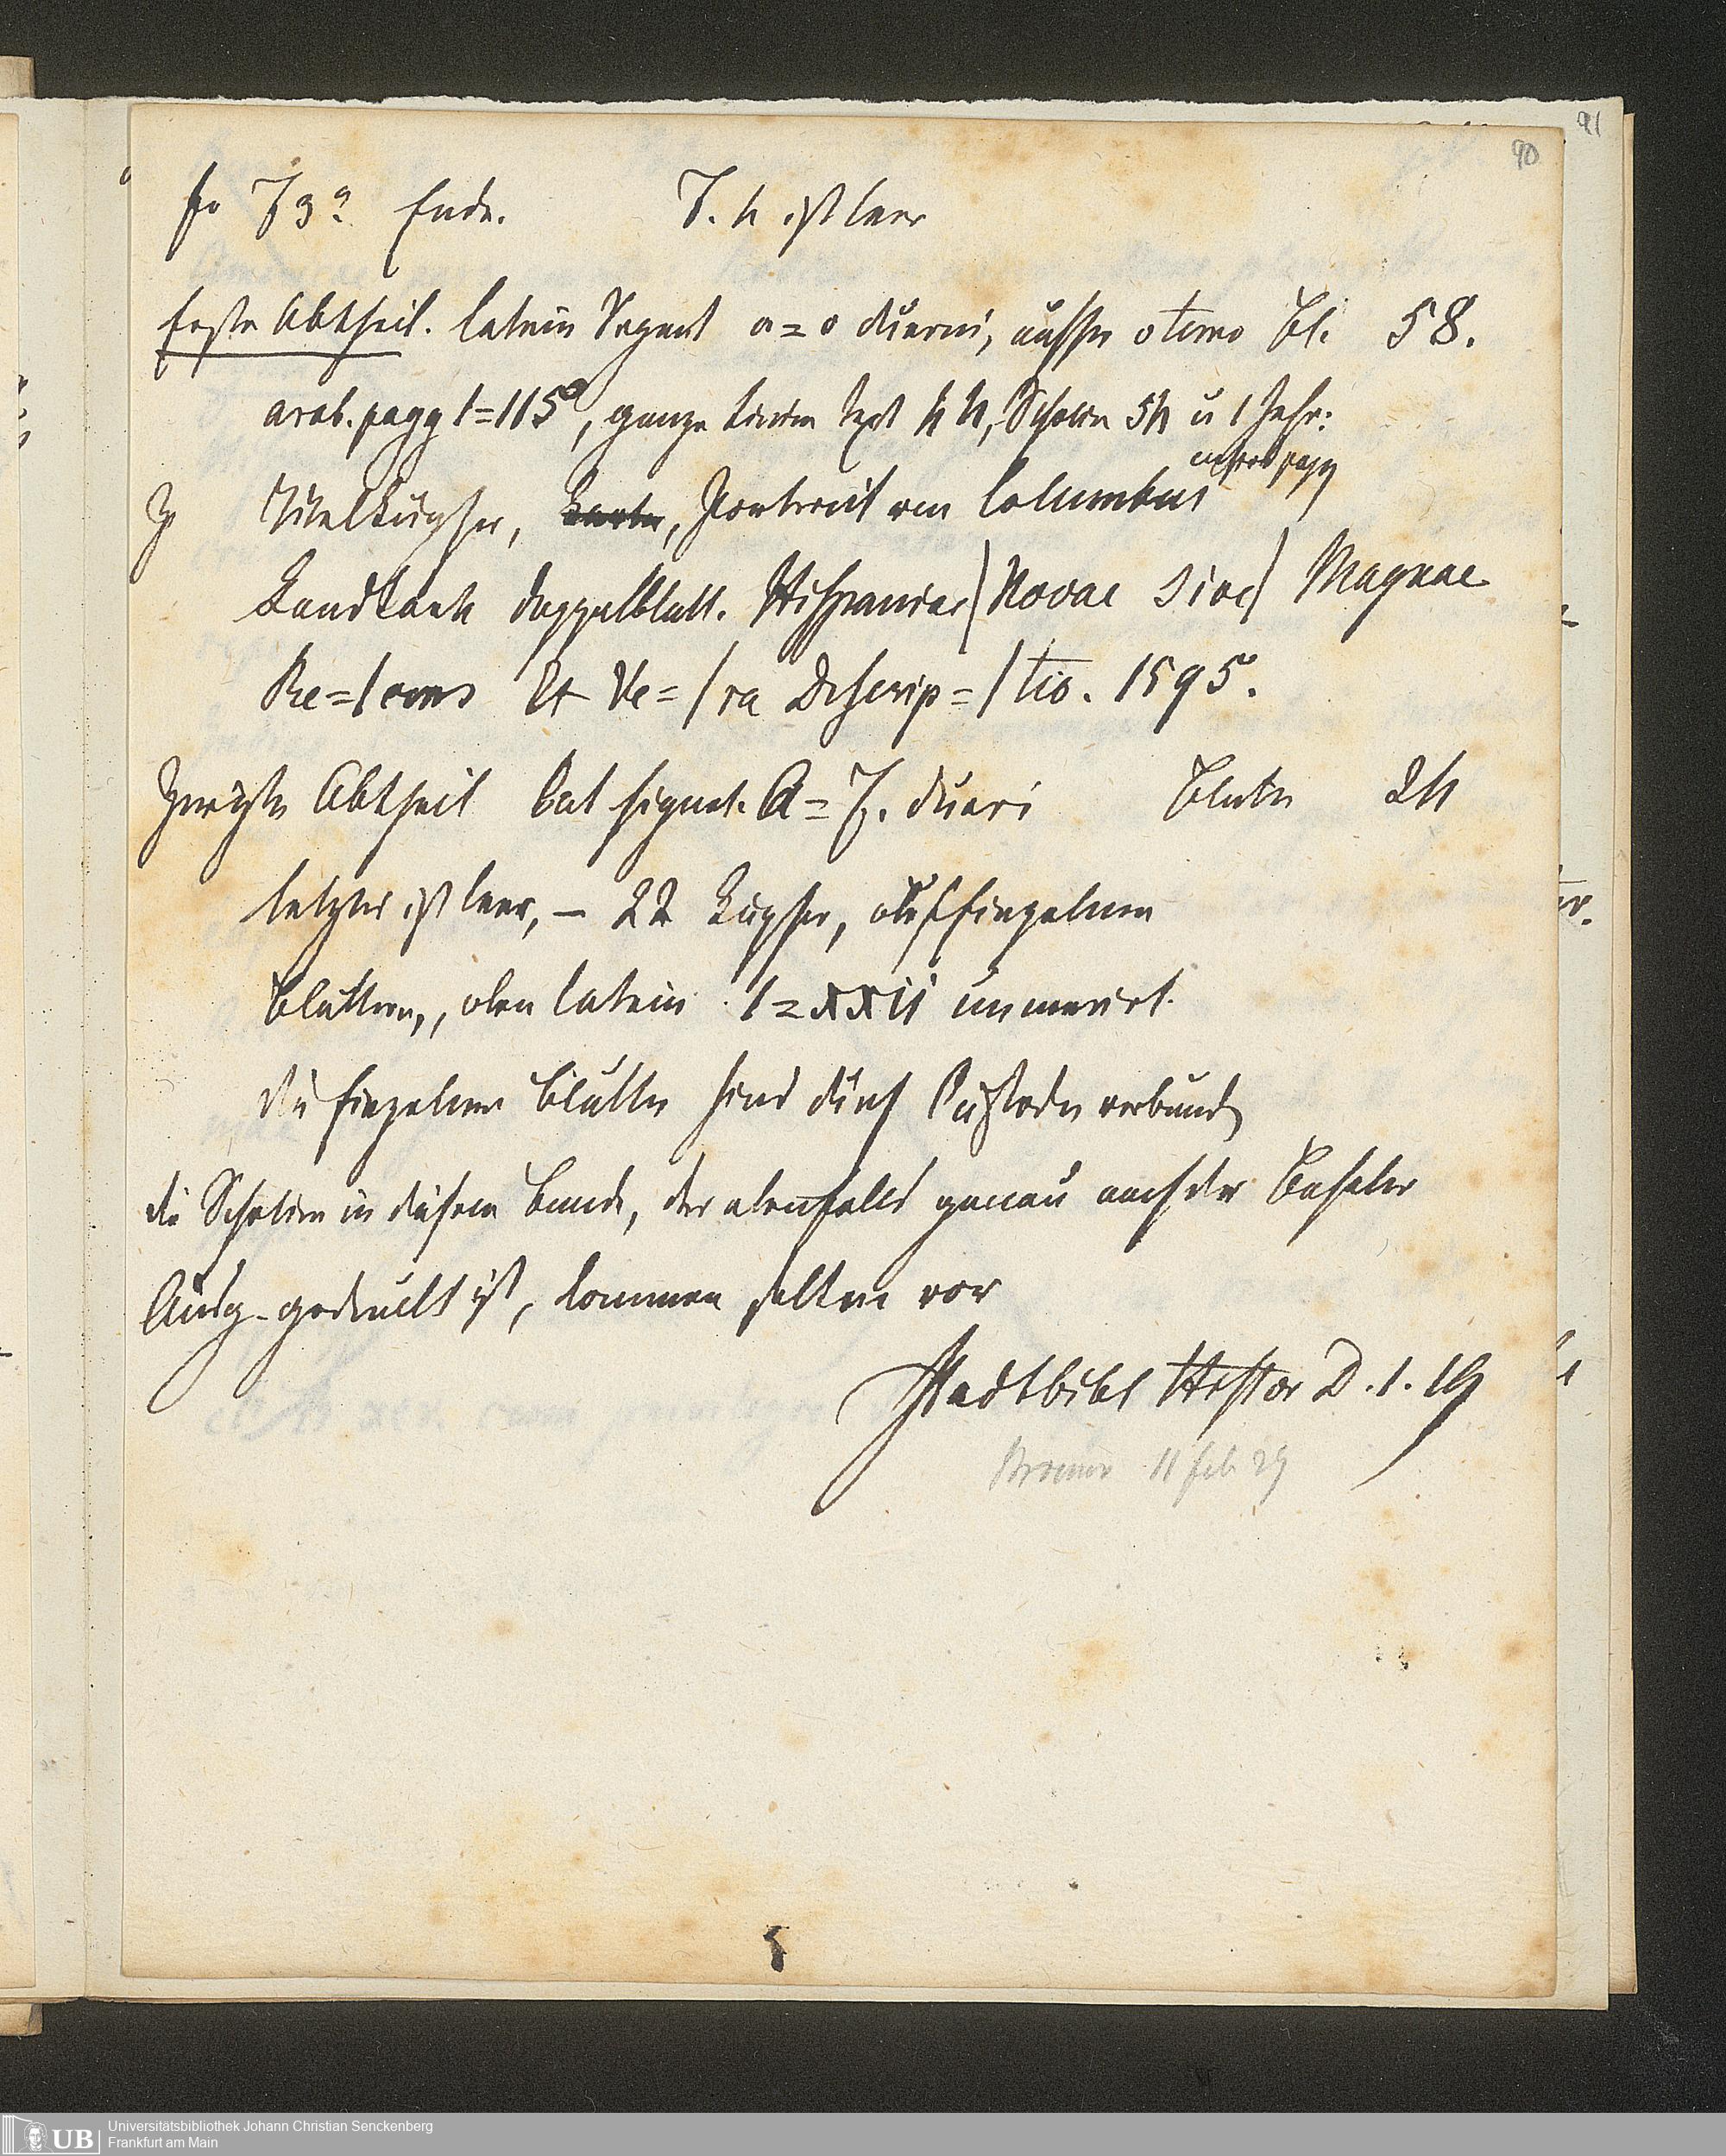 91
90
fo F3ª Ende. F. 4 ist leer
Erste Abtheil. latein Signat a=o duerni, ausser o terno Bl. 58.
arab. pagg 1=115, ganze Linien Text 44, Scholien 54 u 1
Titelkupfer, Karte, Portrait von Columbus
Landkarte Doppelblatt. Hispaniae | Novae Sive | Magnae
Re=| Et Ve=/ra Descrip=/tio. 1595.
Zweite Abtheil Lat signat. A=F. Blätter 24
letztes ist leer, – 22 Kupfer, auf einzelnen
Blättern, oben latein I=XXII numerirt.
die einzelnen Blätter sind durch Custoden verbund
die Scholien in diesem Bande, der ebenfalls genau nach der Baseler
Ausg. gedruckt ist, kommen selten vor
Stadtbibl Histor D. 1. 19
11 feb 29
Universitätsbibliothek Johann Christian Senckenberg
Frankfurt am Main
UB